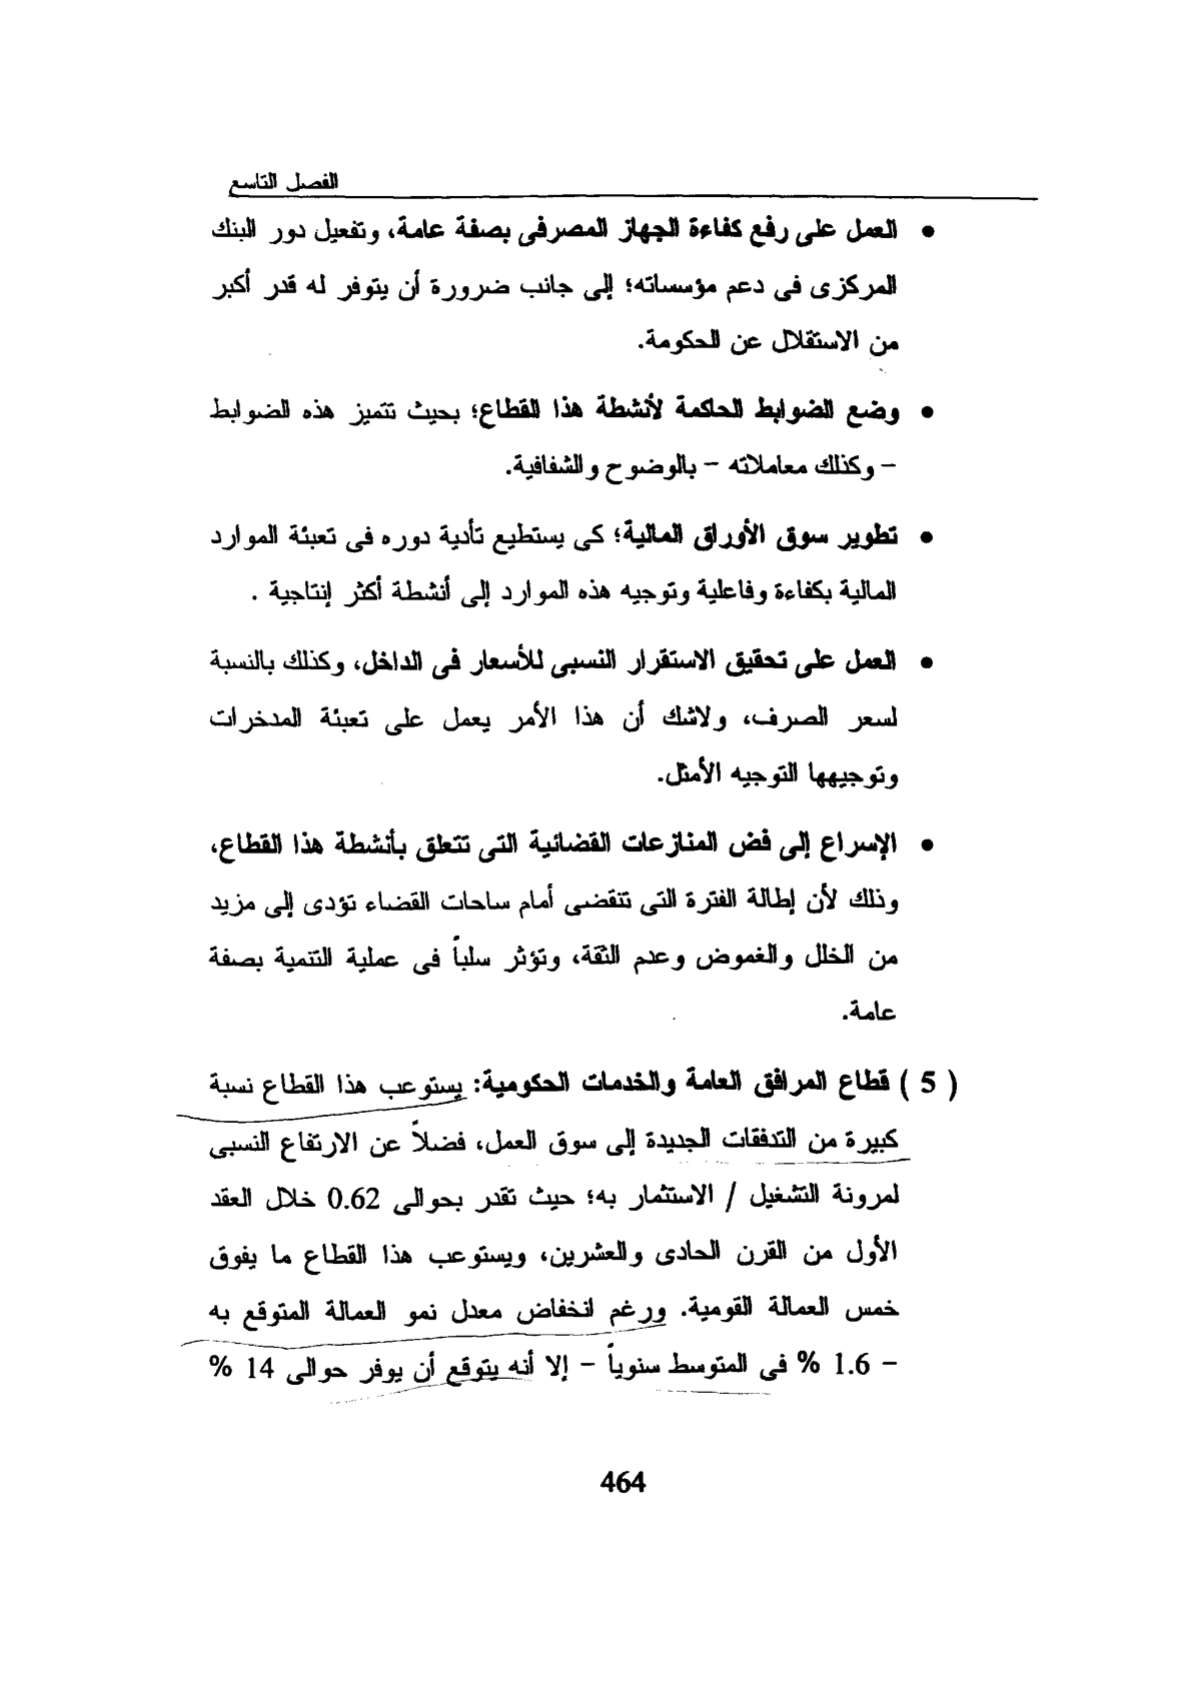 الفصل التاسع
• العمل على رفع كفاءة الجهاز المصرفى بصفة عامة، وتفعيل دور البنك
المركزى فى دعم مؤسساته؛ إلى جانب ضرورة أن يتوفر له قدر أكبر
من الاستقلال عن الحكومة.
• وضع الضوابط الحاكمة لأنشطة هذا القطاع؛ بحيث تتميز هذه الضوابط
– وكذلك معاملاته – بالوضوح والشفافية.
• تطوير سوق الأوراق المالية؛ كى يستطيع تأدية دوره فى تعبئة الموارد
المالية بكفاءة وفاعلية وتوجيه هذه الموارد إلى أنشطة أكثر إنتاجية .
• العمل على تحقيق الاستقرار النسبى للأسعار فى الداخل، وكذلك بالنسبة
لسعر الصرف، ولاشك أن هذا الأمر يعمل على تعبئة المدخرات
وتوجيهها التوجيه الأمثل.
• الإسراع إلى فض المنازعات القضائية التى تتعلق بأنشطة هذا القطاع،
وذلك لأن إطالة الفترة التى تنقضى أمام ساحات القضاء تؤدى إلى مزيد
من الخلل والغموض وعدم الثقة، وتؤثر سلباً فى عملية التنمية بصفة
عامة.
( 5 ) قطاع المرافق العامة والخدمات الحكومية: يستوعب هذا القطاع نسبة
كبيرة من التدفقات الجديدة إلى سوق العمل، فضلاً عن الارتفاع النسبى
لمرونة التشغيل / الاستثمار به؛ حيث تقدر بحوالى 0.62 خلال العقد
الأول من القرن الحادى والعشرين، ويستوعب هذا القطاع ما يفوق
خمس العمالة القومية. ورغم انخفاض معدل نمو العمالة المتوقع به
– 1.6 % فى المتوسط سنوياً – إلا أنه يتوقع أن يوفر حوالى 14 %
464